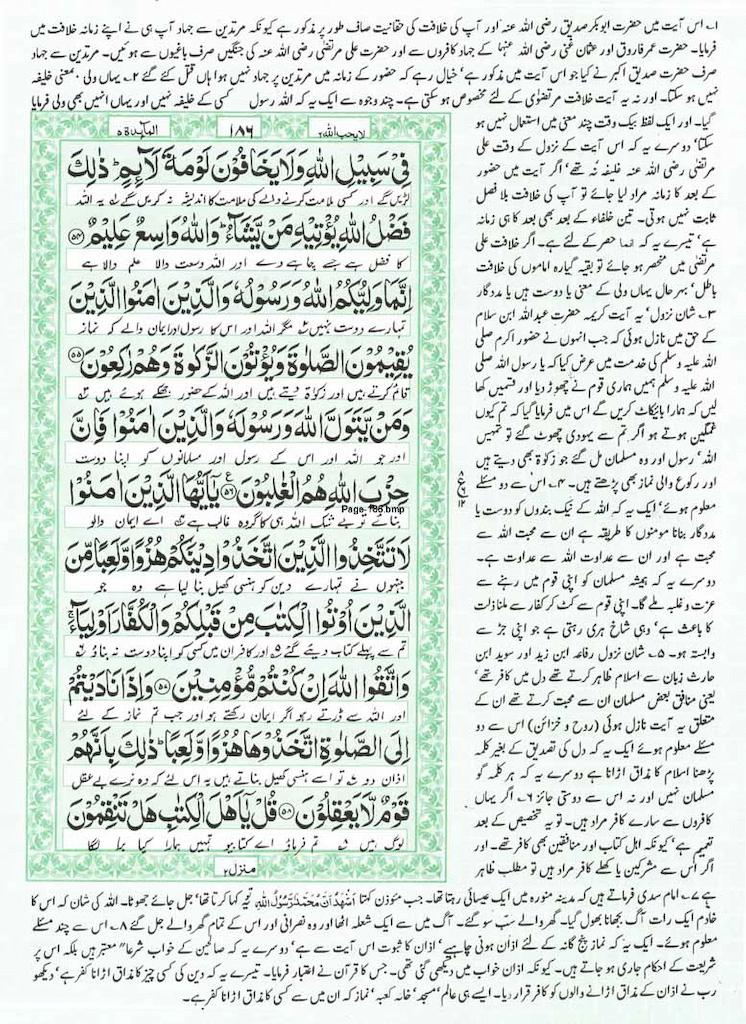 ۱؎ اس آیت میں حضرت ابوبکر صدیق رضی اللہ عنہ اور آپ کی خلافت کی حقانیت صاف طور پر مذکور ہے کیونکہ مرتدین سے جہاد آپ ہی نے اپنے زمانہ خلافت میں
فرمایا۔ حضرت عمر فاروق اور عثمان غنی رضی اللہ عنہا کے جہاد کافروں سے اور حضرت علی مرتضیٰ رضی اللہ عنہ کی جنگیں صرف باغیوں سے ہوئیں۔ مرتدین سے جہاد
صرف حضرت صدیق اکبر نے کیا جو اس آیت میں مذکور ہے' خیال رہے کہ حضور کے زمانہ میں مرتدین پر جہاد نہیں ہوا ہاں قتل کئے گئے ۲؎ یہاں ولی بمعنی خلیفہ
نہیں ہو سکتا۔ اور نہ یہ آیت خلافت مرتضوی کے لئے مخصوص ہو سکتی ہے۔ چند وجوہ سے ایک یہ کہ اللہ رسول کسی کے خلیفہ نہیں اور یہاں انہیں بھی ولی فرمایا
لایحب اللہ ۶
۱۸۶
المآئدۃ ۵
فِیْ سَبِیْلِ اللّٰهِ وَلَا یَخَافُوْنَ لَوْمَةَ لَآئِمٍ ؕ ذٰلِكَ
لڑیں گے اور کسی ملامت کرنے والے کی ملامت کا اندیشہ نہ کریں گے یہ اللہ
فَضْلُ اللّٰهِ یُؤْتِیْهِ مَنْ یَّشَآءُ ؕ وَاللّٰهُ وَاسِعٌ عَلِیْمٌ ۝۵۴
کا فضل ہے جسے چاہے دے اور اللہ وسعت والا علم والا ہے
اِنَّمَا وَلِیُّكُمُ اللّٰهُ وَرَسُوْلُهٗ وَالَّذِیْنَ اٰمَنُوا الَّذِیْنَ
تمہارے دوست نہیں مگر اللہ اور اس کا رسول اور ایمان والے کہ نماز
یُقِیْمُوْنَ الصَّلٰوةَ وَیُؤْتُوْنَ الزَّكٰوةَ وَهُمْ رٰكِعُوْنَ ۝۵۵
قائم کرتے ہیں اور زکوٰۃ دیتے ہیں اور اللہ کے حضور جھکے ہوئے ہیں
وَمَنْ یَّتَوَلَّ اللّٰهَ وَرَسُوْلَهٗ وَالَّذِیْنَ اٰمَنُوْا فَاِنَّ
اور جو اللہ اور اس کے رسول اور مسلمانوں کو اپنا دوست
حِزْبَ اللّٰهِ هُمُ الْغٰلِبُوْنَ ۝۵۶ یٰۤاَیُّهَا الَّذِیْنَ اٰمَنُوْا
Page-186.bmp
بنائے تو بے شک اللہ ہی کا گروہ غالب ہے اے ایمان والو
لَا تَتَّخِذُوا الَّذِیْنَ اتَّخَذُوْا دِیْنَكُمْ هُزُوًا وَّلَعِبًا مِّنَ
جنہوں نے تمہارے دین کو ہنسی کھیل بنا لیا ہے وہ جو
الَّذِیْنَ اُوْتُوا الْكِتٰبَ مِنْ قَبْلِكُمْ وَالْكُفَّارَ اَوْلِیَآءَ ۚ
تم سے پہلے کتاب دیئے گئے اور کافر ان میں کسی کو اپنا دوست نہ بناؤ
وَاتَّقُوا اللّٰهَ اِنْ كُنْتُمْ مُّؤْمِنِیْنَ ۝۵۷ وَاِذَا نَادَیْتُمْ
اور اللہ سے ڈرتے رہو اگر ایمان رکھتے ہو اور جب تم نماز کے لئے
اِلَی الصَّلٰوةِ اتَّخَذُوْهَا هُزُوًا وَّلَعِبًا ؕ ذٰلِكَ بِاَنَّهُمْ
اذان دو تو اسے ہنسی کھیل بناتے ہیں یہ اس لئے کہ وہ نرے بے عقل
قَوْمٌ لَّا یَعْقِلُوْنَ ۝۵۸ قُلْ یٰۤاَهْلَ الْكِتٰبِ هَلْ تَنْقِمُوْنَ
لوگ ہیں تم فرماؤ اے کتابیو تمہیں ہمارا کیا برا لگا
منزل ۲
گیا۔ اور ایک لفظ بیک وقت چند معنی میں استعمال نہیں ہو
سکتا' دوسرے یہ کہ اس آیت کے نزول کے وقت علی
مرتضیٰ رضی اللہ عنہ خلیفہ نہ تھے' اگر آیت میں حضور
کے بعد کا زمانہ مراد لیا جائے تو آپ کی خلافت بلا فصل
ثابت نہیں ہوتی۔ تین خلفاء کے بعد بھی بعد کا ہی زمانہ
ہے' تیسرے یہ کہ انما حصر کے لئے ہے۔ اگر خلافت علی
مرتضیٰ میں منحصر ہو جائے تو بقیہ گیارہ اماموں کی خلافت
باطل' بہرحال یہاں ولی کے معنی یا دوست ہیں یا مددگار
۳؎ شان نزول' یہ آیت کریمہ حضرت عبداللہ ابن سلام
کے حق میں نازل ہوئی کہ جب انہوں نے حضور اکرم صلی
اللہ علیہ وسلم کی خدمت میں عرض کیا کہ یا رسول اللہ صلی
اللہ علیہ وسلم ہمیں ہماری قوم نے چھوڑ دیا اور قسمیں کھا
لیں کہ ہمارا بائیکاٹ کریں گے اس میں فرمایا گیا کہ تم کیوں
غمگین ہوتے ہو اگر تم سے یہودی چھوٹ گئے تو تمہیں
اللہ' رسول اور وہ مسلمان مل گئے جو زکوٰۃ بھی دیتے ہیں
اور رکوع والی نماز بھی پڑھتے ہیں۔ ۴؎ اس سے دو مسئلے
معلوم ہوئے' ایک یہ کہ اللہ کے نیک بندوں کو دوست یا
مددگار بنانا مومنوں کا طریقہ ہے ان سے محبت اللہ سے
محبت ہے اور ان سے عداوت اللہ سے عداوت ہے۔
دوسرے یہ کہ ہمیشہ مسلمان کو اپنی قوم میں رہنے سے
عزت و غلبہ ملے گا۔ اپنی قوم سے کٹ کر کفار سے ملنا ذلت
کا باعث ہے' وہی شاخ ہری رہتی ہے جو اپنی جڑ سے
وابستہ ہو۔ ۵؎ شان نزول رفاعہ ابن زید اور سوید ابن
حارث زبان سے اسلام ظاہر کرتے تھے دل میں کافر تھے'
یعنی منافق بعض مسلمان ان سے محبت کرتے تھے ان کے
متعلق یہ آیت نازل ہوئی (روح و خزائن) اس سے دو
مسئلے معلوم ہوئے ایک یہ کہ دل کی تصدیق کے بغیر کلمہ
پڑھنا اسلام کا مذاق اڑانا ہے دوسرے یہ کہ ہر کلمہ گو
مسلمان نہیں اور نہ اس سے دوستی جائز ۶؎ اگر یہاں
کافروں سے سارے کافر مراد ہیں۔ تو یہ تخصیص کے بعد
تعمیم ہے' کیونکہ اہل کتاب اور منافقین بھی کافر تھے۔ اور
اگر اس سے مشرکین یا کھلے کافر مراد ہیں تو مطلب ظاہر
ہے ۷؎ امام سدی فرماتے ہیں کہ مدینہ منورہ میں ایک عیسائی رہتا تھا۔ جب مؤذن کہتا اَشْهَدُ اَنَّ مُحَمَّدًا رَّسُوْلُ اللّٰهِ تو یہ کہا کرتا تھا' جل جائے جھوٹا۔ اللہ کی شان کہ اس کا
خادم ایک رات آگ بجھانا بھول گیا۔ گھر والے سب سو گئے۔ آگ میں سے ایک شعلہ اٹھا اور وہ نصرانی اور اس کے تمام گھر والے جل گئے ۸؎ اس سے چند مسئلے
معلوم ہوئے۔ ایک یہ کہ نماز پنج گانہ کے لئے اذان ہونی چاہیے' اذان کا ثبوت اس آیت سے ہے' دوسرے یہ کہ صالحین کے خواب شرعا" معتبر ہیں بلکہ اس پر
شریعت کے احکام جاری ہو جاتے ہیں۔ کیونکہ اذان خواب میں دیکھی گئی تھی۔ جس کا قرآن نے اعتبار فرمایا۔ تیسرے یہ کہ دین کی کسی چیز کا مذاق اڑانا کفر ہے' دیکھو
رب نے اذان کے مذاق اڑانے والوں کو کافر قرار دیا۔ ایسے ہی عالم' مسجد' خانہ کعبہ' نماز کہ ان میں سے کسی کا مذاق اڑانا کفر ہے۔